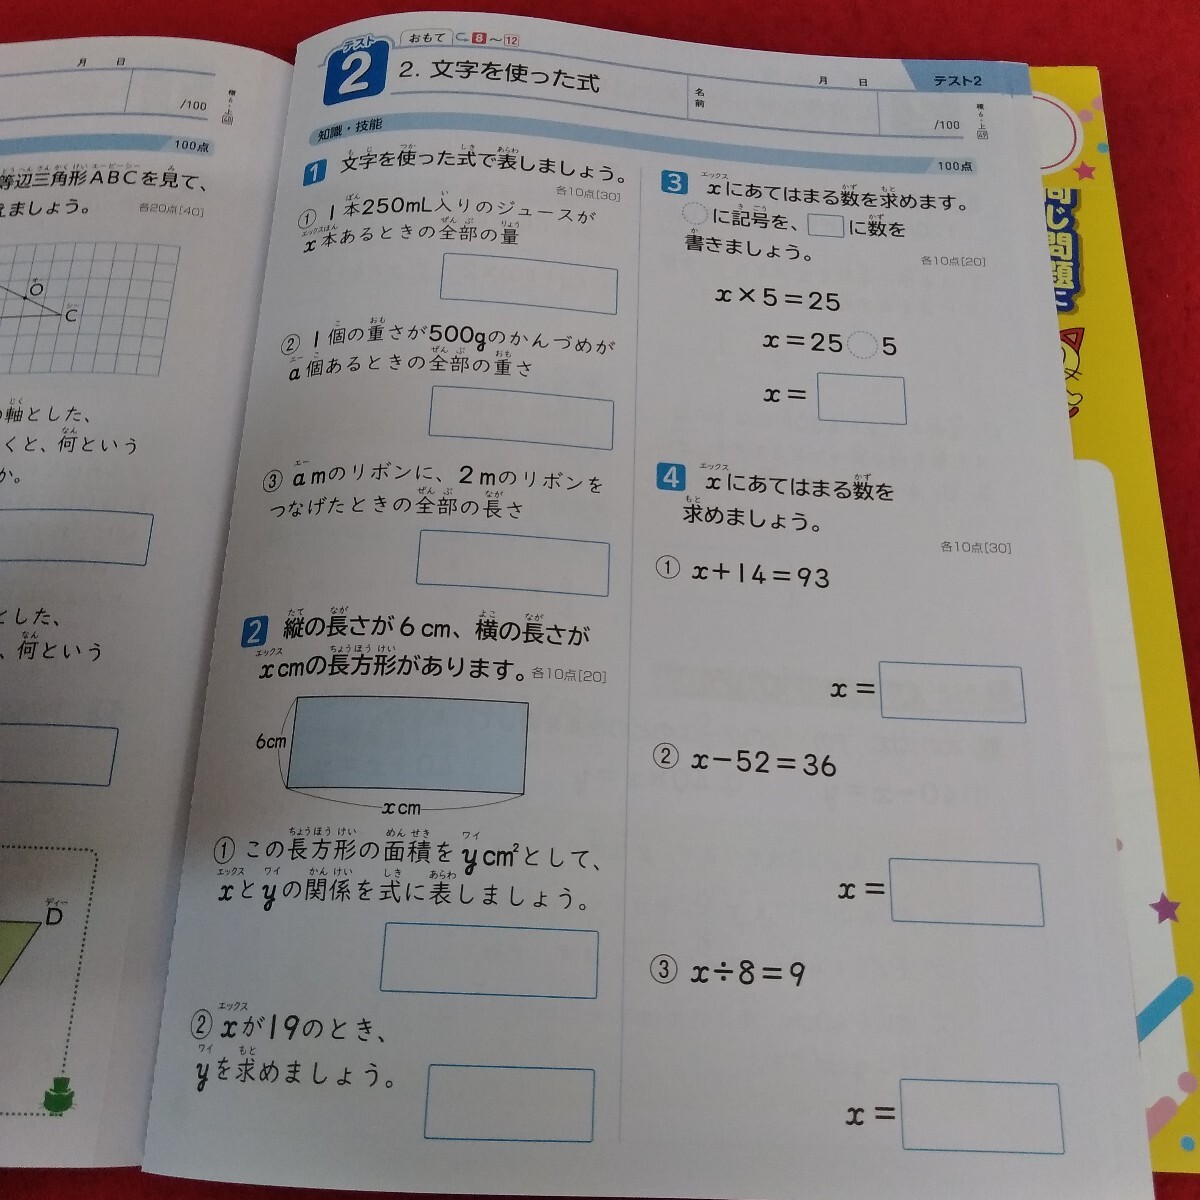 月 日
/100
100点
等辺三角形ABCを見て、
えましょう。
各20点[40]
O
C
の軸とした、
くと、何という
か。
とした、
、何という
D
テスト
2
おもて
8〜12
2. 文字を使った式
名前
月 日
テスト2
/100
知識・技能
100点
1 文字を使った式で表しましょう。
各10点[30]
① 1本250mL入りのジュースが
x本あるときの全部の量
② 1個の重さが500gのかんづめが
a個あるときの全部の重さ
③ amのリボンに、2mのリボンを
つなげたときの全部の長さ
2 縦の長さが6cm、横の長さが
xcmの長方形があります。各10点[20]
6cm
xcm
① この長方形の面積をycm²として、
xとyの関係を式に表しましょう。
② xが19のとき、
yを求めましょう。
3 xにあてはまる数を求めます。
に記号を、 に数を
書きましょう。
各10点[20]
x×5=25
x=25 5
x=
4 xにあてはまる数を
求めましょう。
各10点[30]
① x+14=93
x=
② x−52=36
x=
③ x÷8=9
x=
同じ問題に